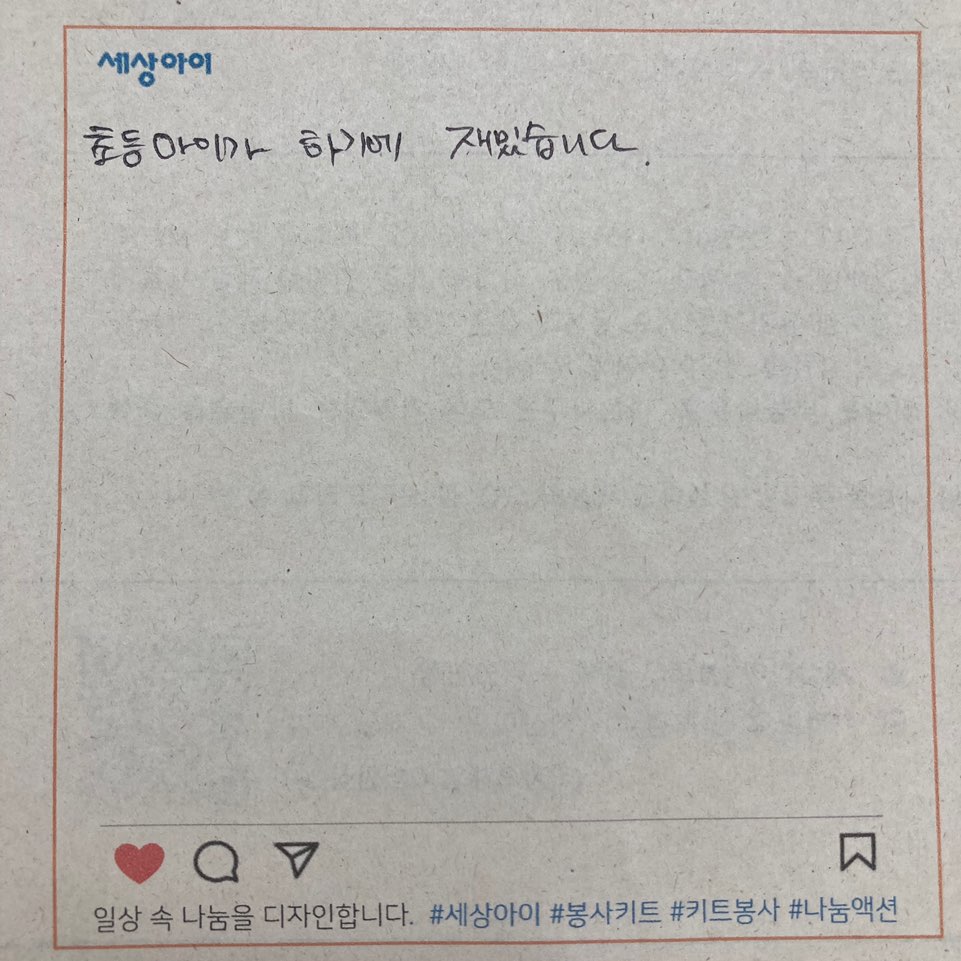 세상아이
초등아이가 하기에 재밌습니다.
일상 속 나눔을 디자인합니다. #세상아이 #봉사키트 #키트봉사 #나눔액션